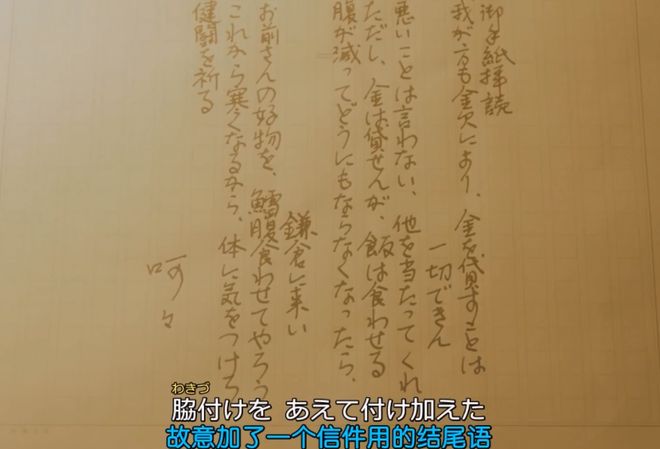 御手紙拝読
我が方も金欠により、金を貸すことは
一切できん
悪いことは言わない、他を当たってくれ
ただし、金は貸せんが、飯は食わせる
腹が減ってどうにもならなくなったら、
鎌倉に来い
お前さんの好物を、鱈腹食わせてやろう
これから寒くなるから、体に気をつけろ
健闘を祈る
呵々
わきづ
脇付けを あえて付け加えた
故意加了一个信件用的结尾语